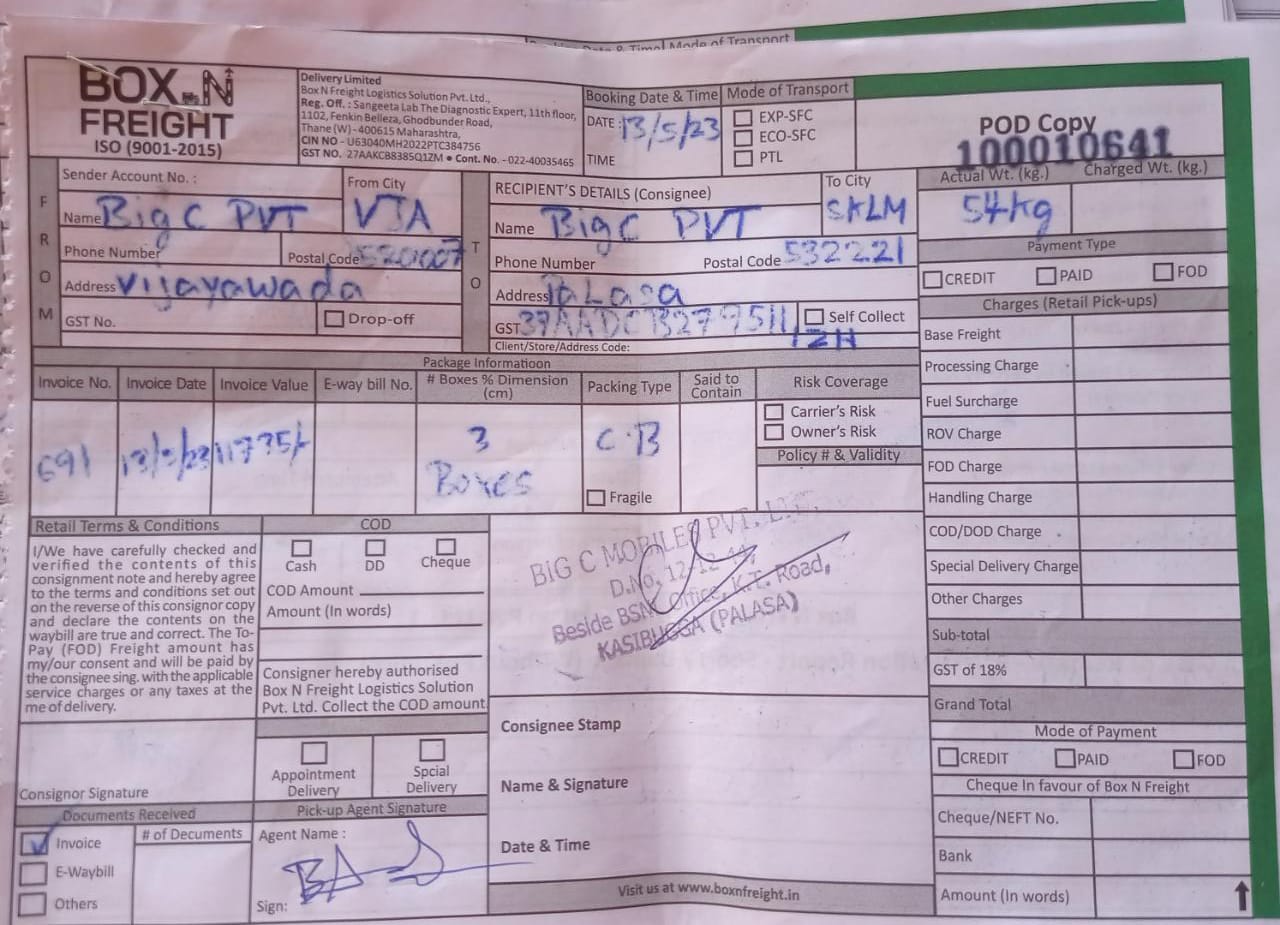 & Time Mode of Transport
BOX N
FREIGHT
ISO (9001-2015)
Delivery Limited
Box N Freight Logistics Solution Pvt. Ltd.,
Reg. Off. : Sangeeta Lab The Diagnostic Expert, 11th floor,
1102, Fenkin Belleza, Ghodbunder Road,
Thane (W) - 400615 Maharashtra,
CIN NO - U63040MH2022PTC384756
GST NO. 27AAKCB8385Q1ZM • Cont. No. -022-40035465
Booking Date & Time
DATE : 13/5/23
TIME
Mode of Transport
EXP-SFC
ECO-SFC
PTL
POD Copy
100010641
FROM
Sender Account No. :
From City
VJA
Name Big C PVT
Phone Number
Postal Code 520007
Address Vijayawada
GST No.
Drop-off
TO
RECIPIENT'S DETAILS (Consignee)
To City
SKLM
Name Big C PVT
Phone Number
Postal Code 532221
Address PaLasa
GST
Self Collect
Client/Store/Address Code:
Actual Wt. (kg.)
54kg
Charged Wt. (kg.)
Payment Type
CREDIT PAID FOD
Charges (Retail Pick-ups)
Base Freight
Processing Charge
Fuel Surcharge
ROV Charge
FOD Charge
Handling Charge
COD/DOD Charge
Special Delivery Charge
Other Charges
Sub-total
GST of 18%
Grand Total
Mode of Payment
CREDIT PAID FOD
Cheque In favour of Box N Freight
Cheque/NEFT No.
Bank
Amount (In words)
Package Informatioon
Invoice No.
691
Invoice Date
13/5/23
Invoice Value
11735/-
E-way bill No.
# Boxes % Dimension
(cm)
3
Boxes
Packing Type
C.B
Fragile
Said to
Contain
Risk Coverage
Carrier's Risk
Owner's Risk
Policy # & Validity
Retail Terms & Conditions
I/We have carefully checked and
verified the contents of this
consignment note and hereby agree
to the terms and conditions set out
on the reverse of this consignor copy
and declare the contents on the
waybill are true and correct. The To-
Pay (FOD) Freight amount has
my/our consent and will be paid by
the consignee sing. with the applicable
service charges or any taxes at the
me of delivery.
Consignor Signature
COD
Cash DD Cheque
COD Amount
Amount (In words)
Consigner hereby authorised
Box N Freight Logistics Solution
Pvt. Ltd. Collect the COD amount
Appointment
Delivery
Spcial
Delivery
BIG C MOBILES PVT. LTD.
D.No, 12-12-44,
Beside BSNL Office, K.T. Road,
KASIBUGGA (PALASA)
Consignee Stamp
Name & Signature
Date & Time
Documents Received
Invoice
E-Waybill
Others
# of Documents
Pick-up Agent Signature
Agent Name :
Sign:
Visit us at www.boxnfreight.in